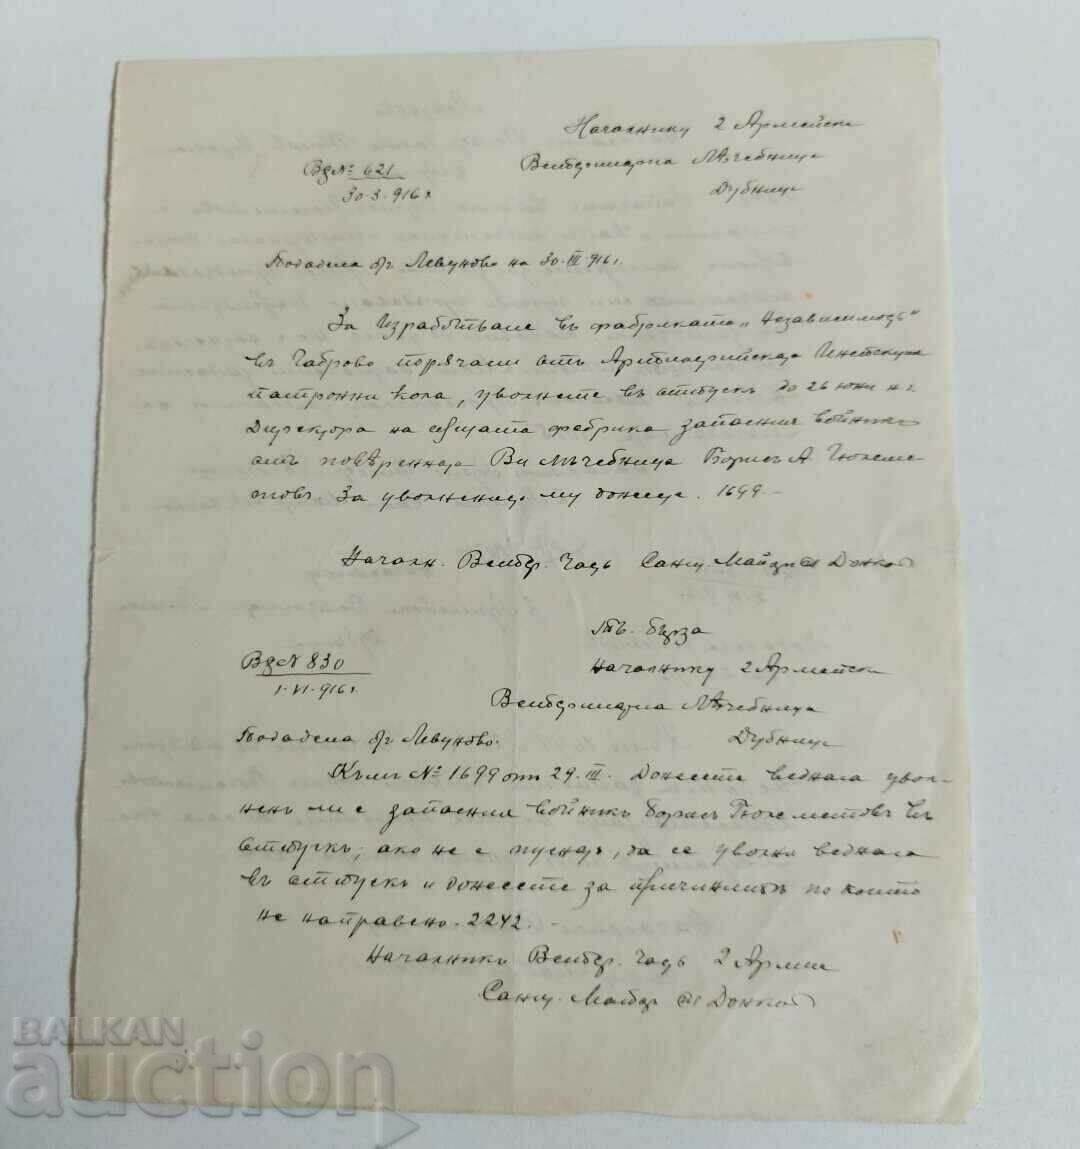 Началнику 2 Армейска
Ветеринарна Лѣчебница
Дубница
Вд № 621
30-3-916 г.
Подадена отъ Левуново на 30-III-916 г.
За изработване въ фабриката „Независимость“
въ Габрово порѫчани отъ Артилерийската Инспекция
патронни кола, уволнете въ отпускъ до 26 юни н.г.
Директора на сѫщата фабрика запасния войникъ
отъ повѣрената Ви лѣчебница Борисъ А. Гюлеме
товъ. За уволнението му донесете. 1699.-
Началн. Ветер. часть Сан. Майоръ Донков
Тв. бърза
Вд № 830
1-VI-916 г.
Началнику 2 Армейска
Ветеринарна Лѣчебница
Дубница
Подадена отъ Левуново.
Къмъ № 1699 отъ 29-III. Донесете веднага увол-
ненъ ли е запасния войникъ Борисъ Гюлеметовъ въ
отпускъ; ако не е пуснатъ, да се уволни веднага
въ отпускъ и донесете за причинитѣ по които
не направено. 2242.-
Началникъ Ветер. часть 2 Армия
Сан. Майор Донков
BALKAN
auction